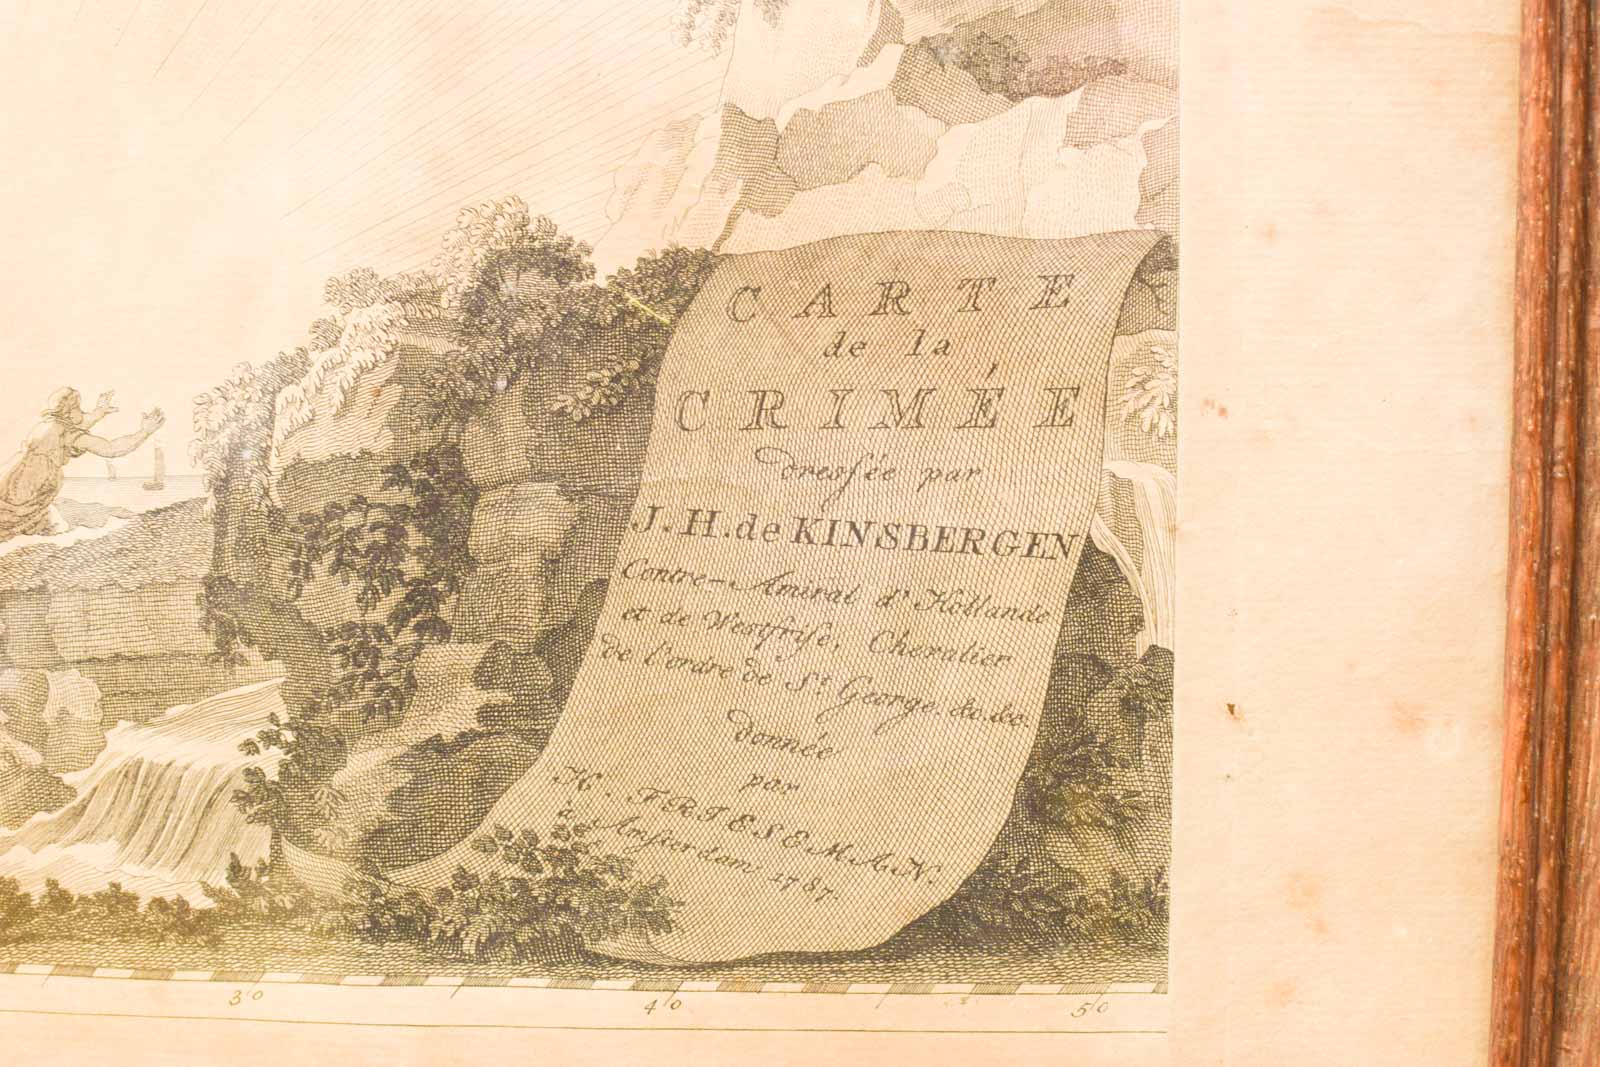 CARTE
de la
CRIMÉE
dresſée par
J. H. de KINSBERGEN
Contre-Amiral d'Hollande
et de Westfriſe, Chevalier
de l'ordre de St. George &c. &c.
donnée
par
H. FRIESEMAN.
à Amsterdam 1787.
30 40 50